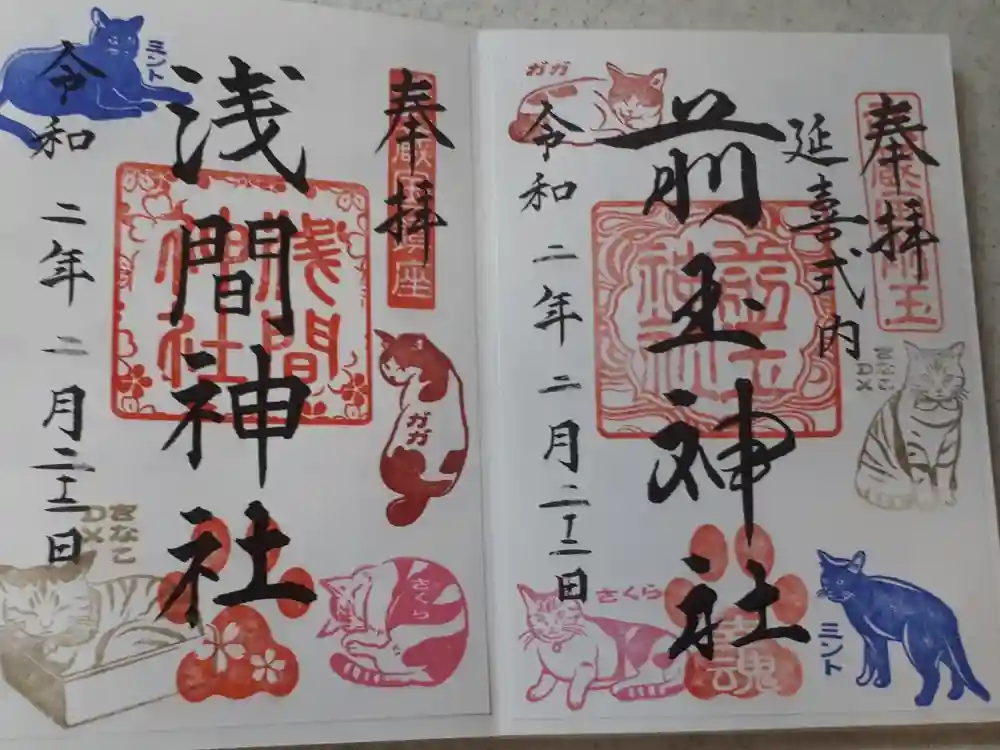 奉拝
延喜式内
前玉神社
令和二年二月二十二日
ガガ
きなこDX
ミント
さくら
前玉神社
幸魂
奉拝
浅間神社
令和二年二月二十二日
ミント
ガガ
きなこDX
さくら
浅間神社